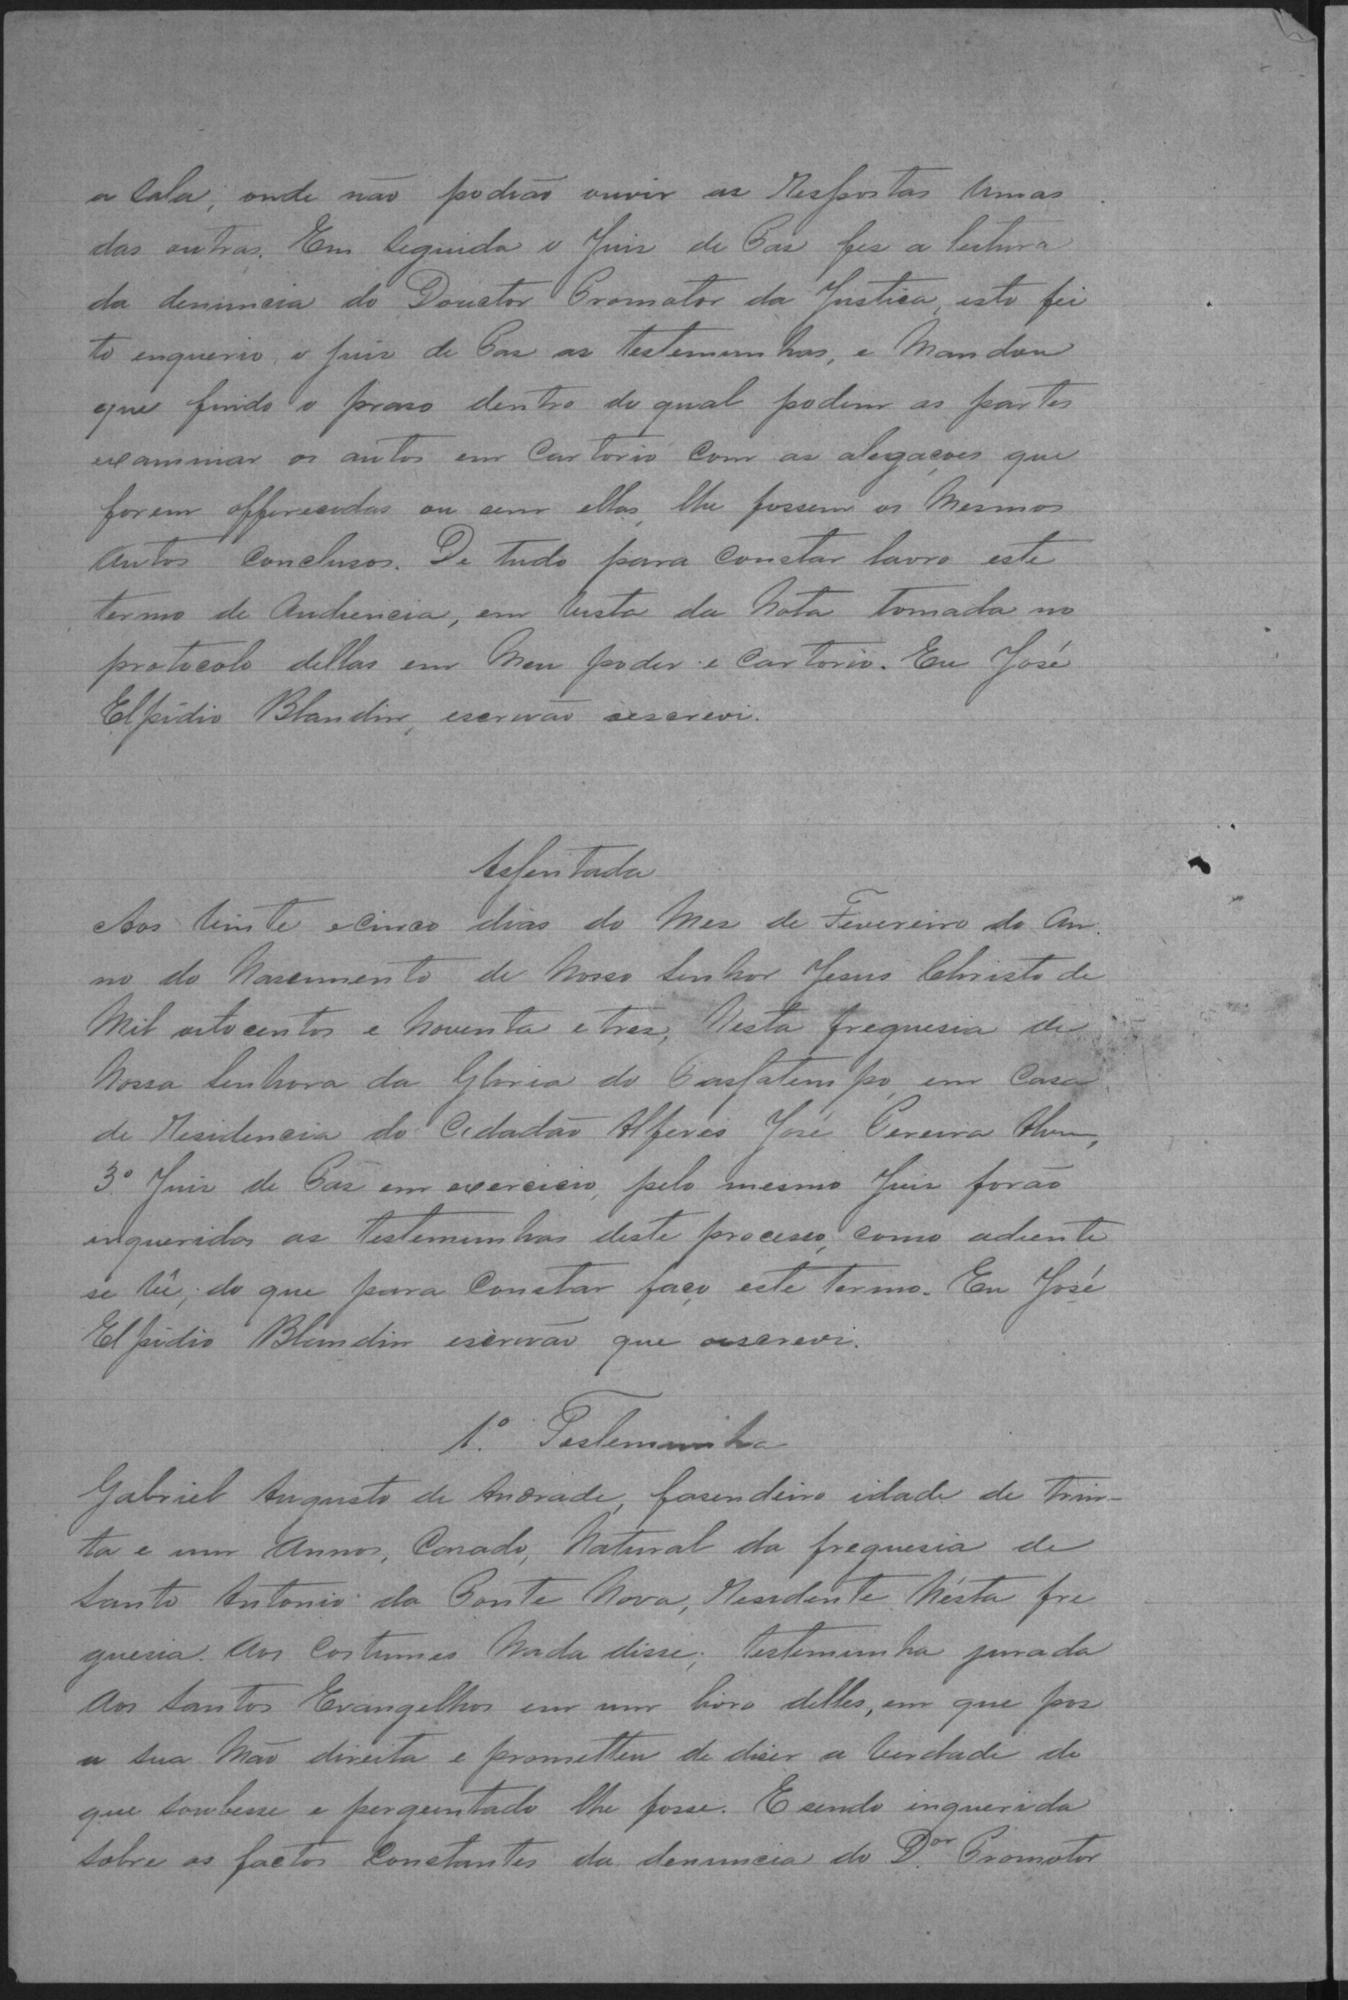 a sala, onde não podião ouvir as Respostas umas
das outras. Em seguida o Juiz de Paz fez a leitura
da denuncia do Douctor Promotor da Justiça, isto fei
to enquerio o juiz de Paz as testemunhas, e Mandou
que findo o praso dentro do qual podem as partes
examinar os autos em Cartorio com as alegaçoes que
forem offerecidas ou sem ellas, lhe fossem os Mesmos
autos conclusos. De tudo para constar lavro este
termo de Audiencia, em vista da Nota tomada no
protocolo dellas em Meu poder e Cartorio. Eu José
Elpidio Blandim, escrivão oescrevi.
Assentada
Aos vinte ecinco dias do Mez de Fevereiro do An
no do Nascimento de Nosso Senhor Jesus Christo de
Mil oitocentos e Noventa e tres, Nesta freguesia de
Nossa Senhora da Gloria do Passatempo, em Casa
de Residencia do Cidadão Alferes José Pereira
3º Juiz de Páz em exercicio, pelo mesmo Juiz forão
inqueridos as testemunhas deste processo, como adiente
se vê; do que para Constar faço este termo. Eu José
Elpidio Blandim escrivão que oescrevi.
1.º Testemunha
Gabriel Augusto de Andrade, fasendeiro idade de trin-
ta e um Annos, Casado, Natural da freguesia de
Santo Antonio da Ponte Nova, Residente Nésta fre
guesia. Aos Costumes Nada disse; testemunha jurada
Aos Santos Evangelhos em um livro delles, em que pos
a sua Mão direita e prometteu de diser a verdade do
que soubesse e perguntado lhe fosse. E sendo inquerida
sobre os factos Constantes da denuncia do D.or Promotor